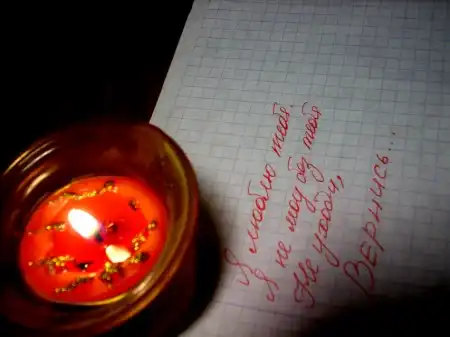 Я люблю тебя.
Я не могу без тебя
Не уходи,
Вернись...